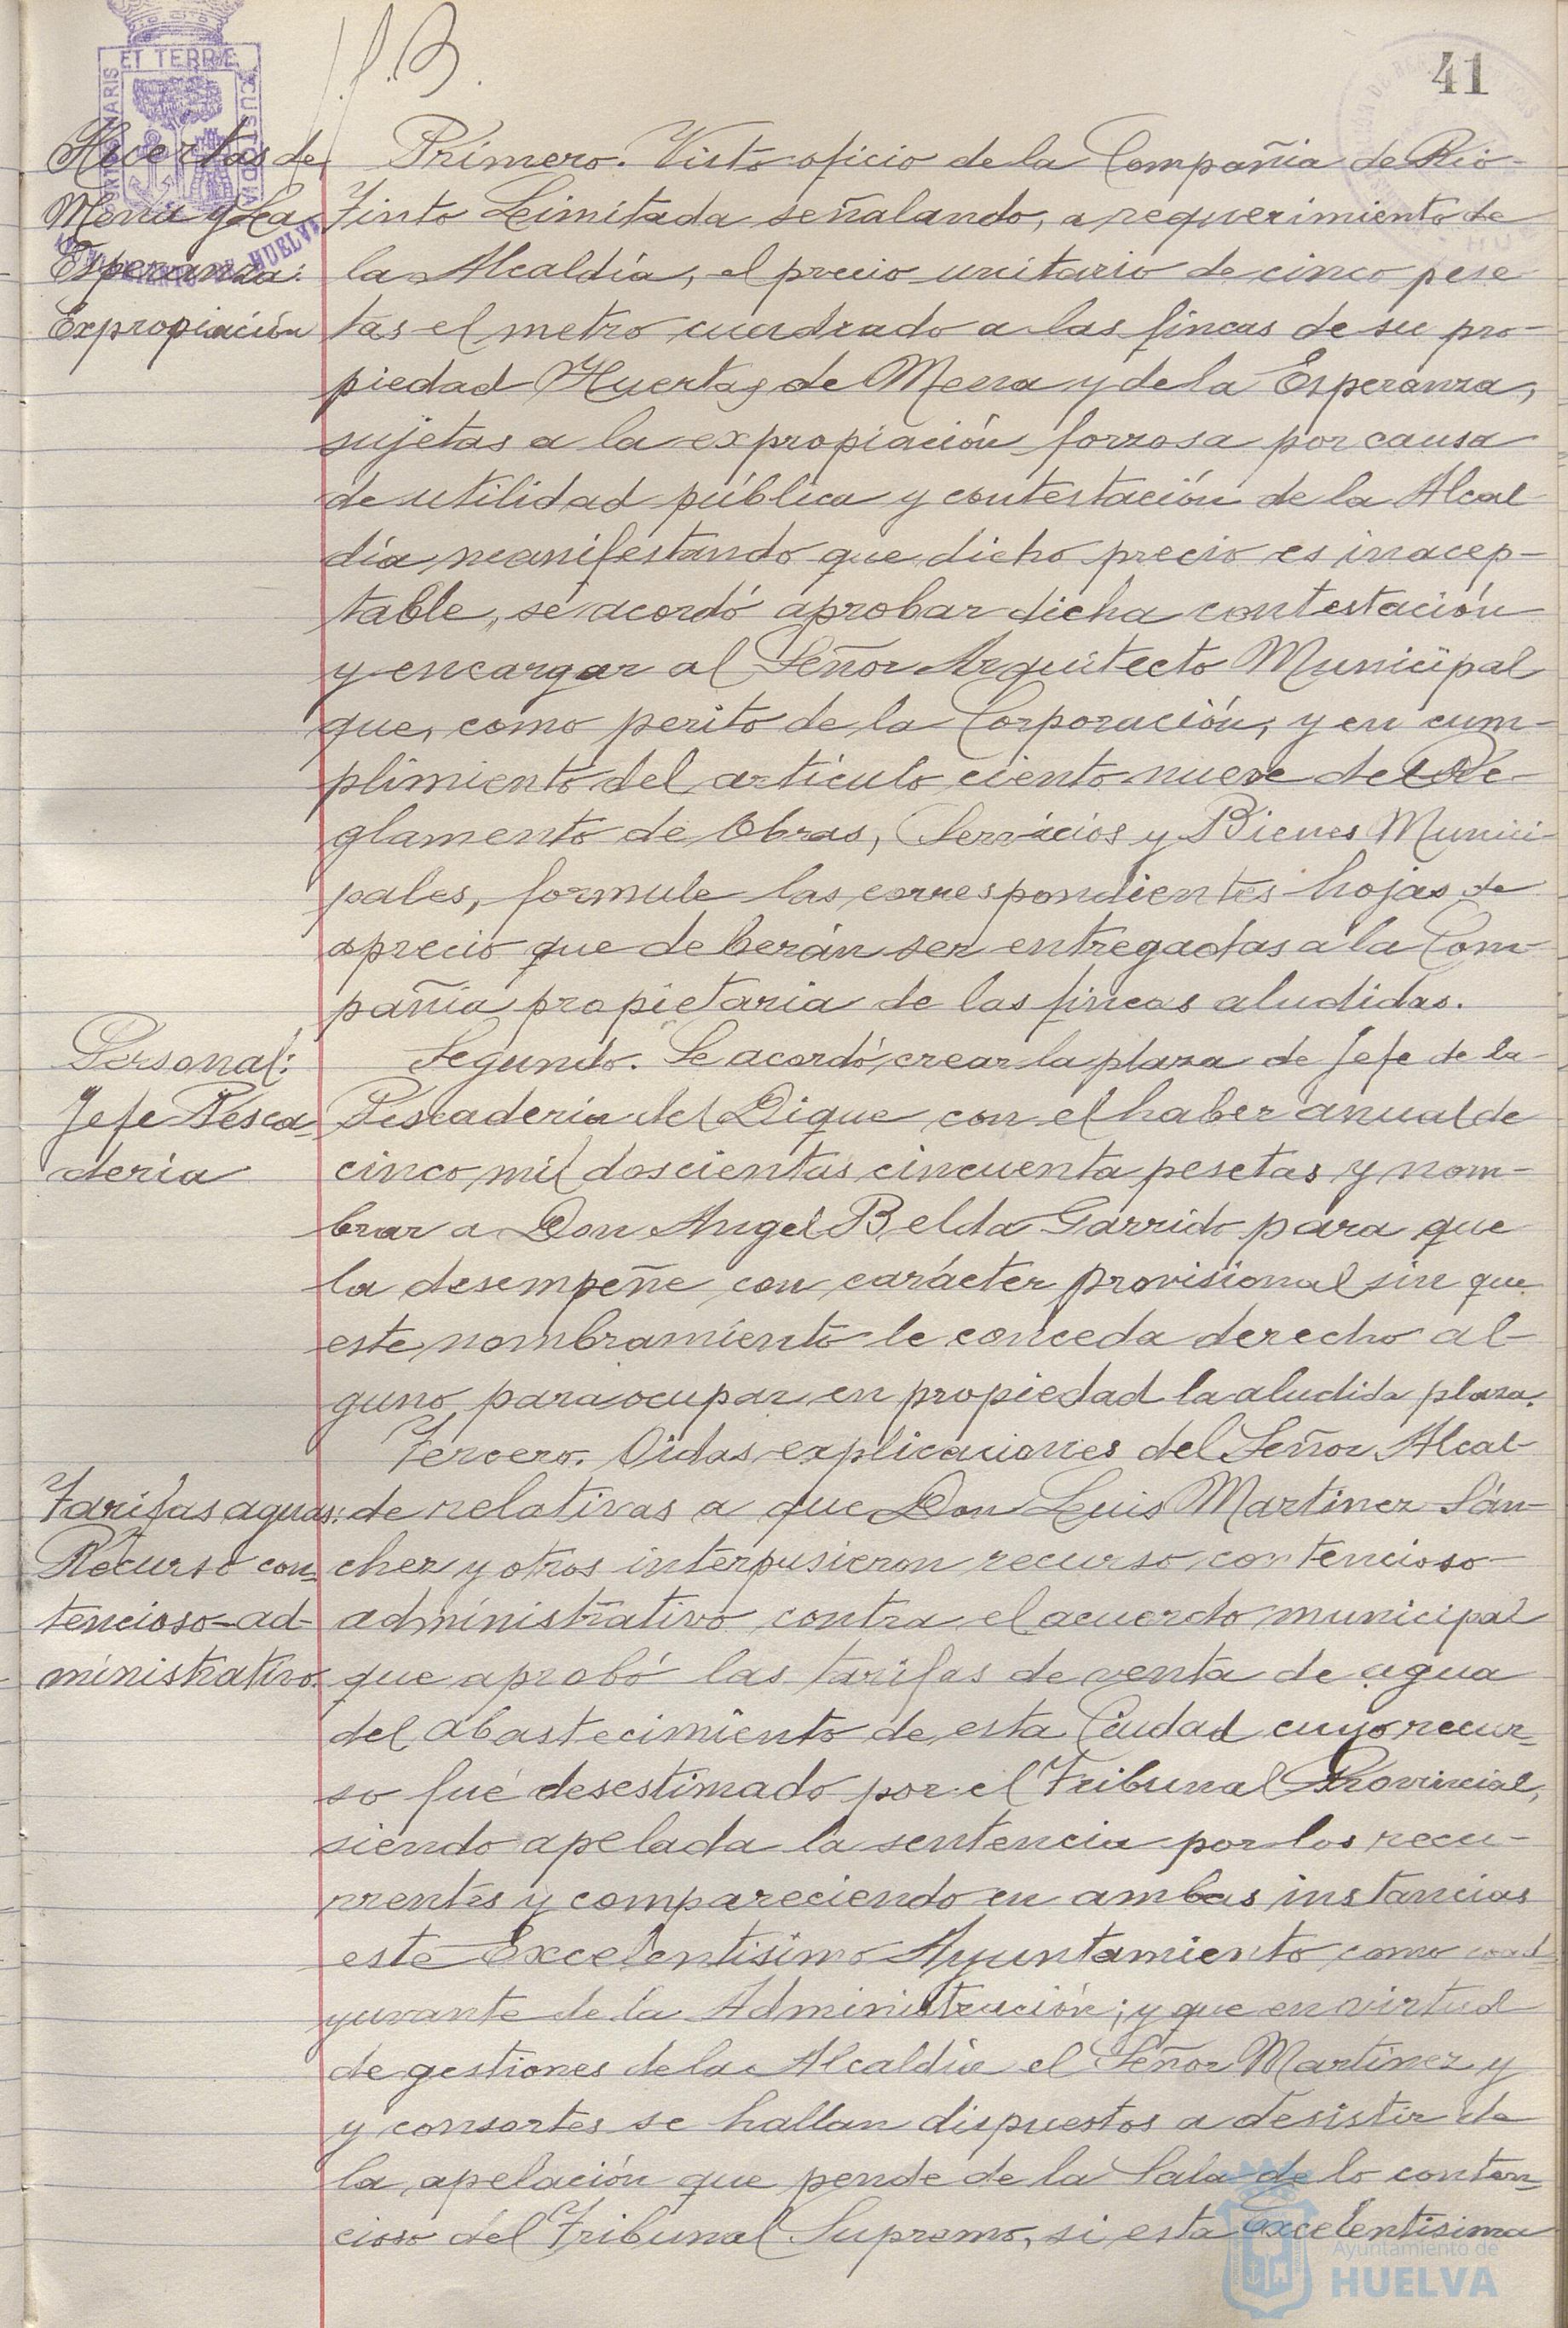 41
Huertas de
Mena y La
Esperanza:
Expropiación
Primero. Visto oficio de la Compañia de Rio-
Tinto Limitada señalando, a requerimiento de
la Alcaldía, el precio unitario de cinco pese
tas el metro cuadrado a las fincas de su pro-
piedad Huertas de Mena y de la Esperanza,
sujetas a la expropiación forzosa por causa
de utilidad pública y contestación de la Alcal
día manifestando que dicho precio es inacep-
table, se acordó aprobar dicha contestación
y encargar al Señor Arquitecto Municipal
que, como perito de la Corporación, y en cum-
plimiento del artículo ciento nueve del Re-
glamento de Obras, Servicios y Bienes Munici-
pales, formule las correspondientes hojas de
aprecio que deberán ser entregadas a la Com-
pañia propietaria de las fincas aludidas.
Personal:
Jefe Pesca-
deria
Segundo. Se acordó crear la plaza de Jefe de la
Pescaderia del Dique con el haber anual de
cinco mil doscientas cincuenta pesetas y nom-
brar a Don Angel Belda Garrido para que
la desempeñe con carácter provisional sin que
este nombramiento le conceda derecho al-
guno para ocupar en propiedad la aludida plaza.
Tercero. Oidas explicaciones del Señor Alcal-
Tarifas aguas:
Recurso con-
tencioso-ad-
ministrativo.
de relativas a que Don Luis Martinez Sán-
chez y otros interpusieron recurso contencioso-
administrativo contra el acuerdo municipal
que aprobó las tarifas de venta de agua
del abastecimiento de esta Ciudad cuyo recur-
so fué desestimado por el Tribunal Provincial,
siendo apelada la sentencia por los recu-
rrentes y compareciendo en ambas instancias
este Excelentisimo Ayuntamiento como coad-
yuvante de la Administración; y que en virtud
de gestiones de la Alcaldía el Señor Martinez y
y consortes se hallan dispuestos a desistir de
la apelación que pende de la Sala de lo conten-
cioso del Tribunal Supremo, si esta Excelentisima
Ayuntamiento de
HUELVA